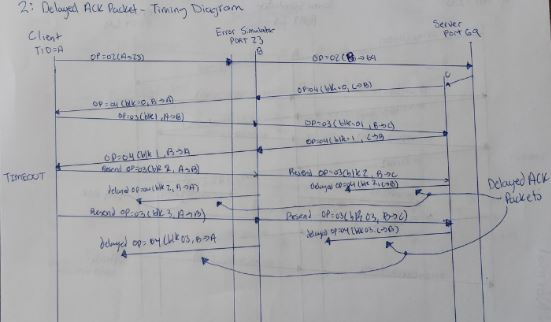 2: Delayed ACK Packet - Timing Diagram
Client
TID=A
Error Simulator
PORT 23
Server
Port 69
B
C
OP=02(A→23)
OP=02(B→69
OP=04(blk=0, C→B)
OP=04(blk=0, B→A)
OP=03(blk1, A→B)
OP=03(blk=01, B→C)
OP=04(blk=1, C→B)
OP=04(blk 1, B→A
TIMEOUT
Resend OP=03(blk 2, A→B)
Resend OP=03(blk 2, B→C
delayed OP=04(blk 2, B→A)
delayed OP=04(blk 2, C→B)
Delayed ACK
Packets
Resend OP=03(blk 3, A→B)
Resend OP=03(blk 03, B→C)
delayed OP=04(blk 03, B→A
delayed OP=04(blk 03, C→B)